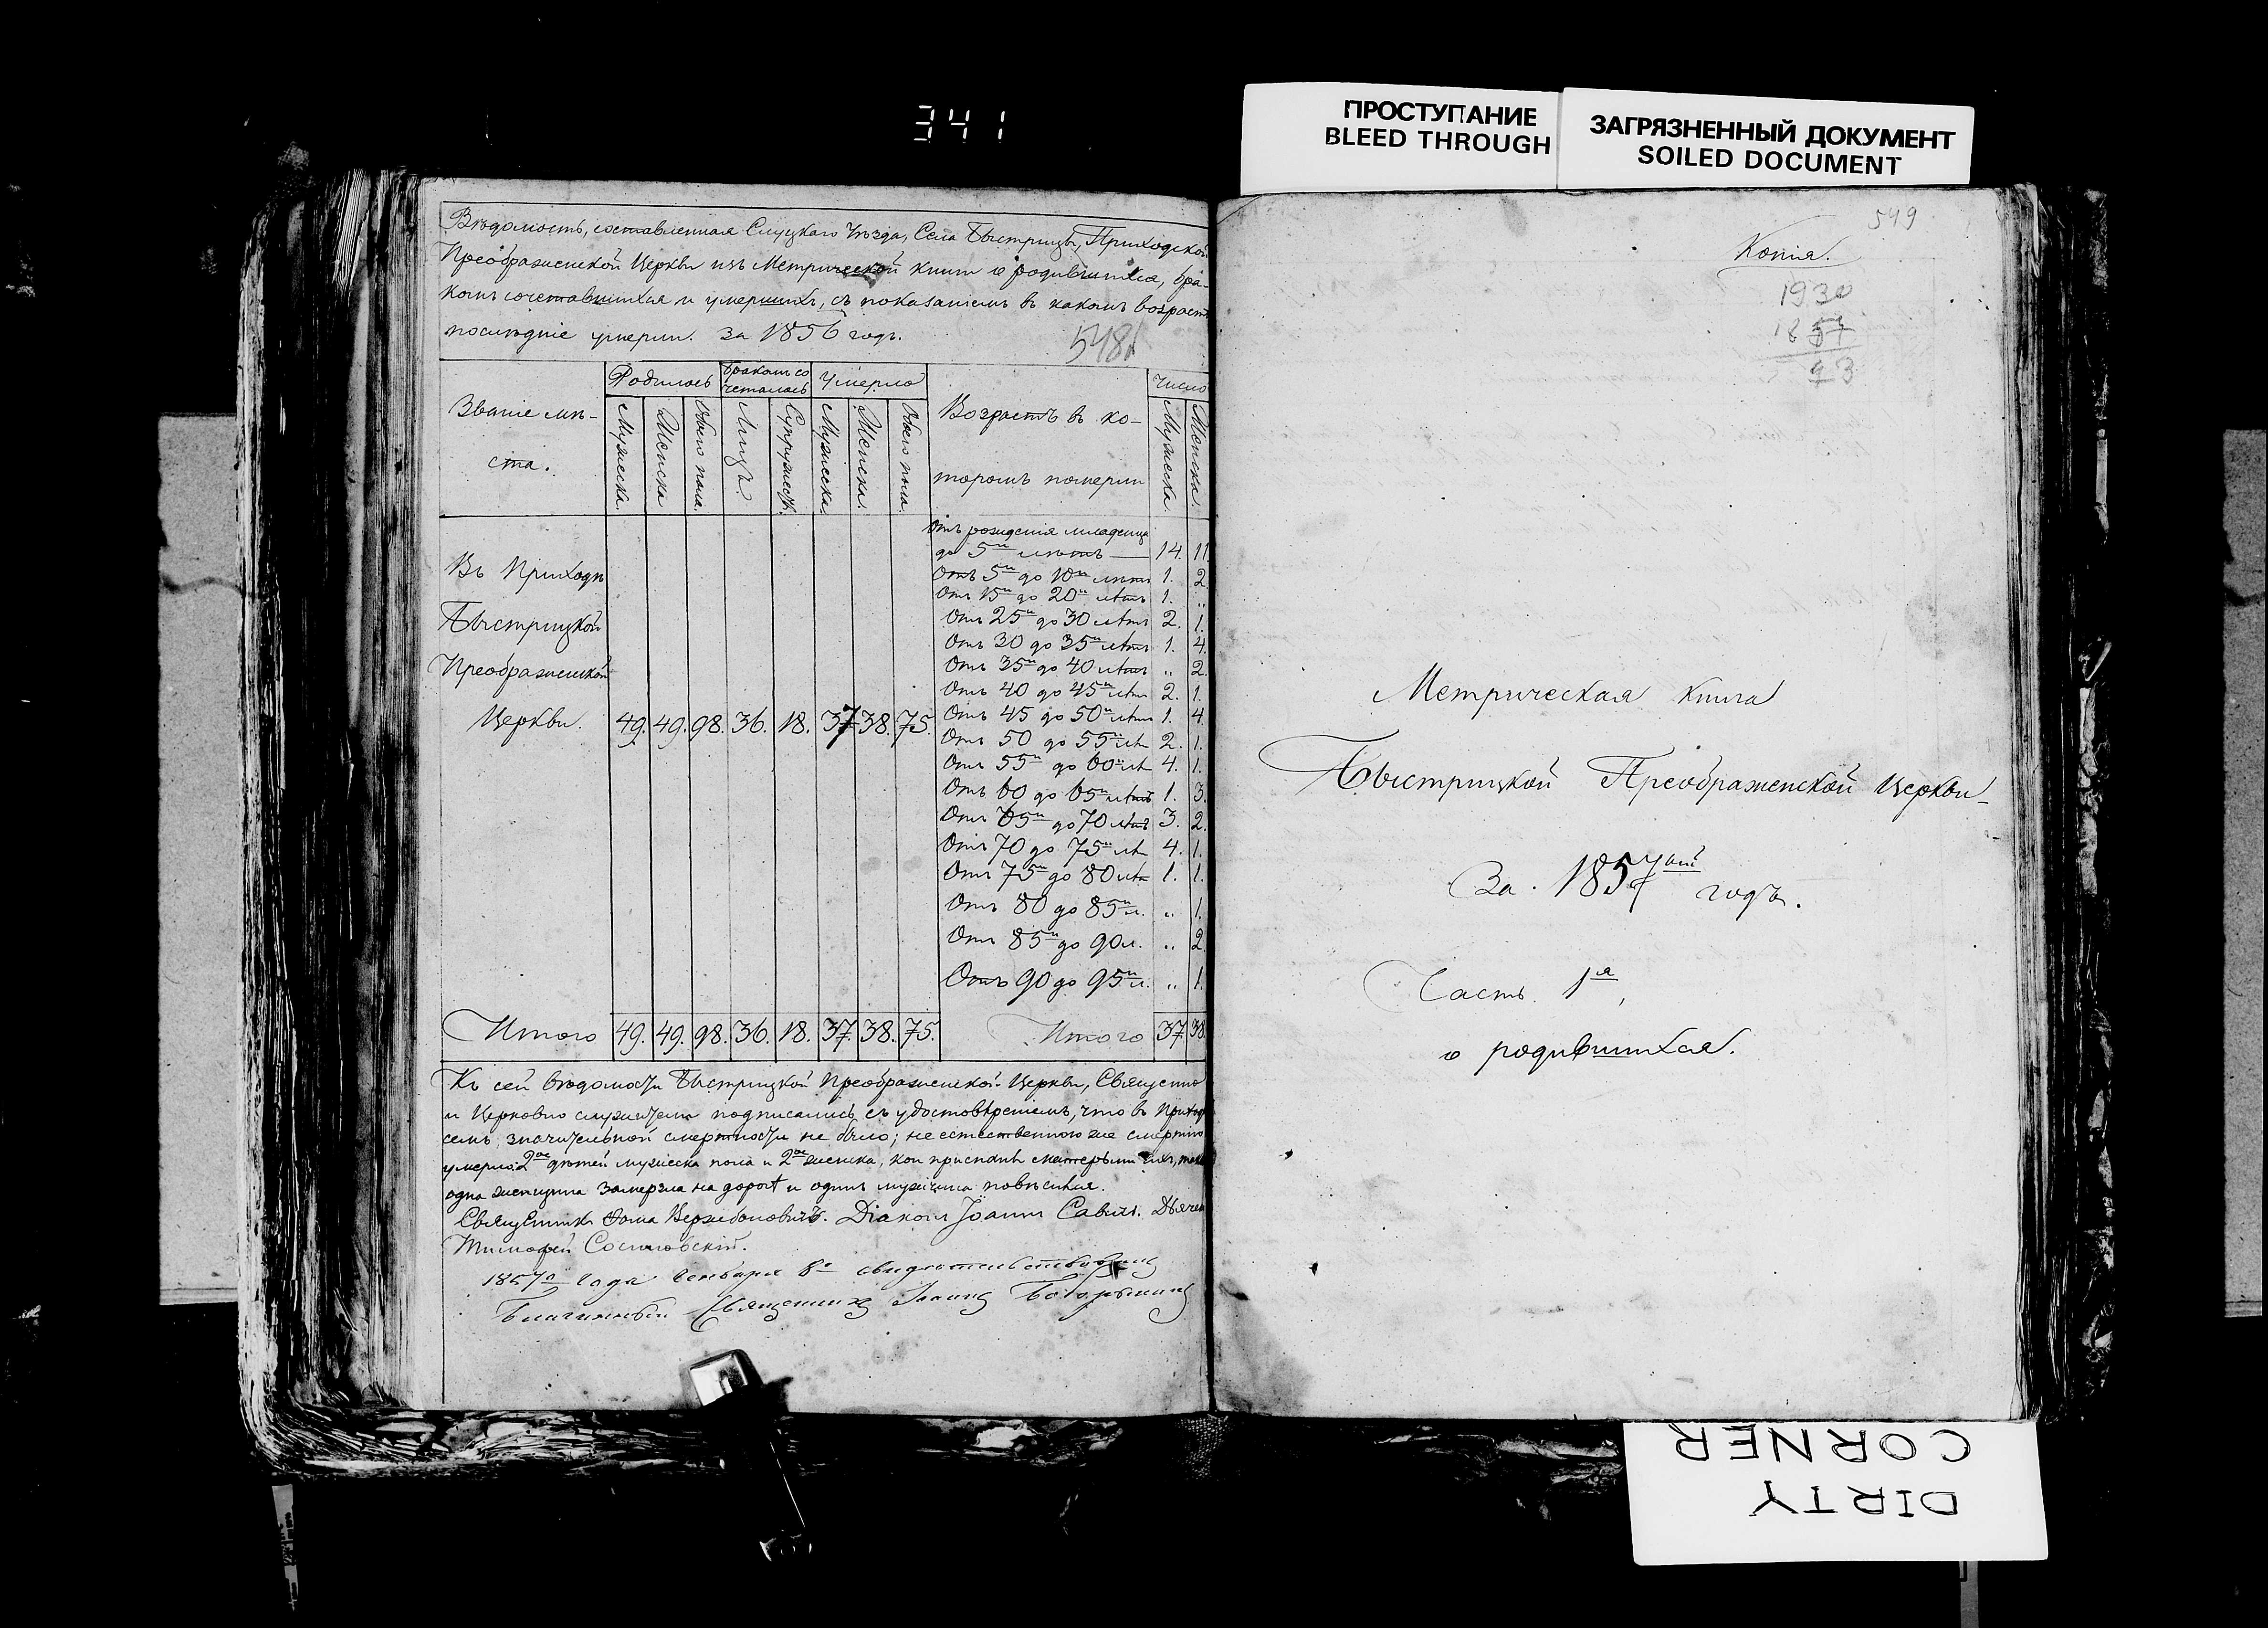 341
ПРОСТУПАНИЕ
BLEED THROUGH
ЗАГРЯЗНЕННЫЙ ДОКУМЕНТ
SOILED DOCUMENT
Вѣдомость, составленная Слуцкаго Уѣзда, Села Быстрицы, Приходской
Преображенской Церкви изъ Метрической книги о родившихся, бра-
комъ сочетавшихся и умершихъ, съ показаніемъ въ какомъ возрастѣ
послѣдніе умерли. За 1856 годъ.
548
Званіе мѣ-
ста.
Родилось
Бракомъ со
четалось
Умерло
Возрастъ въ ко-
торомъ померли
Число
Мужеска.
Женска
Обоего пола.
Лицъ.
Супружеств.
Мужеска.
Женска.
Обоего пола.
Мужеска.
Женска.
Отъ рожденія младенца
до 5и лѣтъ — 14. 11
Отъ 5и до 10и лѣтъ 1. 2.
Отъ 15и до 20и лѣтъ 1. „
Отъ 25и до 30 лѣтъ 2. 1.
Отъ 30 до 35и лѣтъ 1. 4.
Отъ 35и до 40 лѣтъ „ 2.
Отъ 40 до 45и лѣтъ 2. 1.
Отъ 45 до 50и лѣтъ 1. 4.
Отъ 50 до 55и лѣ 2. 1.
Отъ 55и до 60и лѣ 4. 1.
Отъ 60 до 65и лѣтъ 1. 3.
Отъ 65и до 70 лѣтъ 3. 2.
Отъ 70 до 75и лѣ 4. 1.
Отъ 75и до 80 лѣт 1. 1.
Отъ 80 до 85и л. „ 1.
Отъ 85и до 90 л. „ 2.
Отъ 90 до 95и л. „ 1.
Въ Приходѣ
Быстрицкой
Преображенской
Церкви. 49. 49. 98. 36. 18. 37 38. 75.
Итого 49. 49. 98. 36. 18. 37. 38. 75. Итого 37. 38.
Къ сей вѣдомости Быстрицкой Преображенской Церкви, Священно
и Церковно служители подписались съ удостовѣреніемъ, что въ Приход
семъ значительной смертности не было; не естественною же смертію
умерло: 2ое дѣтей мужеска пола и 2ое женска, кои приспаны матерьми ихъ,
одна женщина замерзла на дорогѣ и одинъ мужчина повѣсился.
Священникъ Фома Вержболовичъ. Діаконъ Іоаннъ Савичъ. Дьячек
Тимофей Сосиновскій.
1857го Года Генваря 8го свидѣтельствовалъ
Благочинный Священникъ Іоаннъ
549
Копія.
1930
1857
93
Метрическая книга
Быстрицкой Преображенской Церкви
За 1857ой годъ.
Часть 1я,
о родившихся.
DIRTY
CORNER